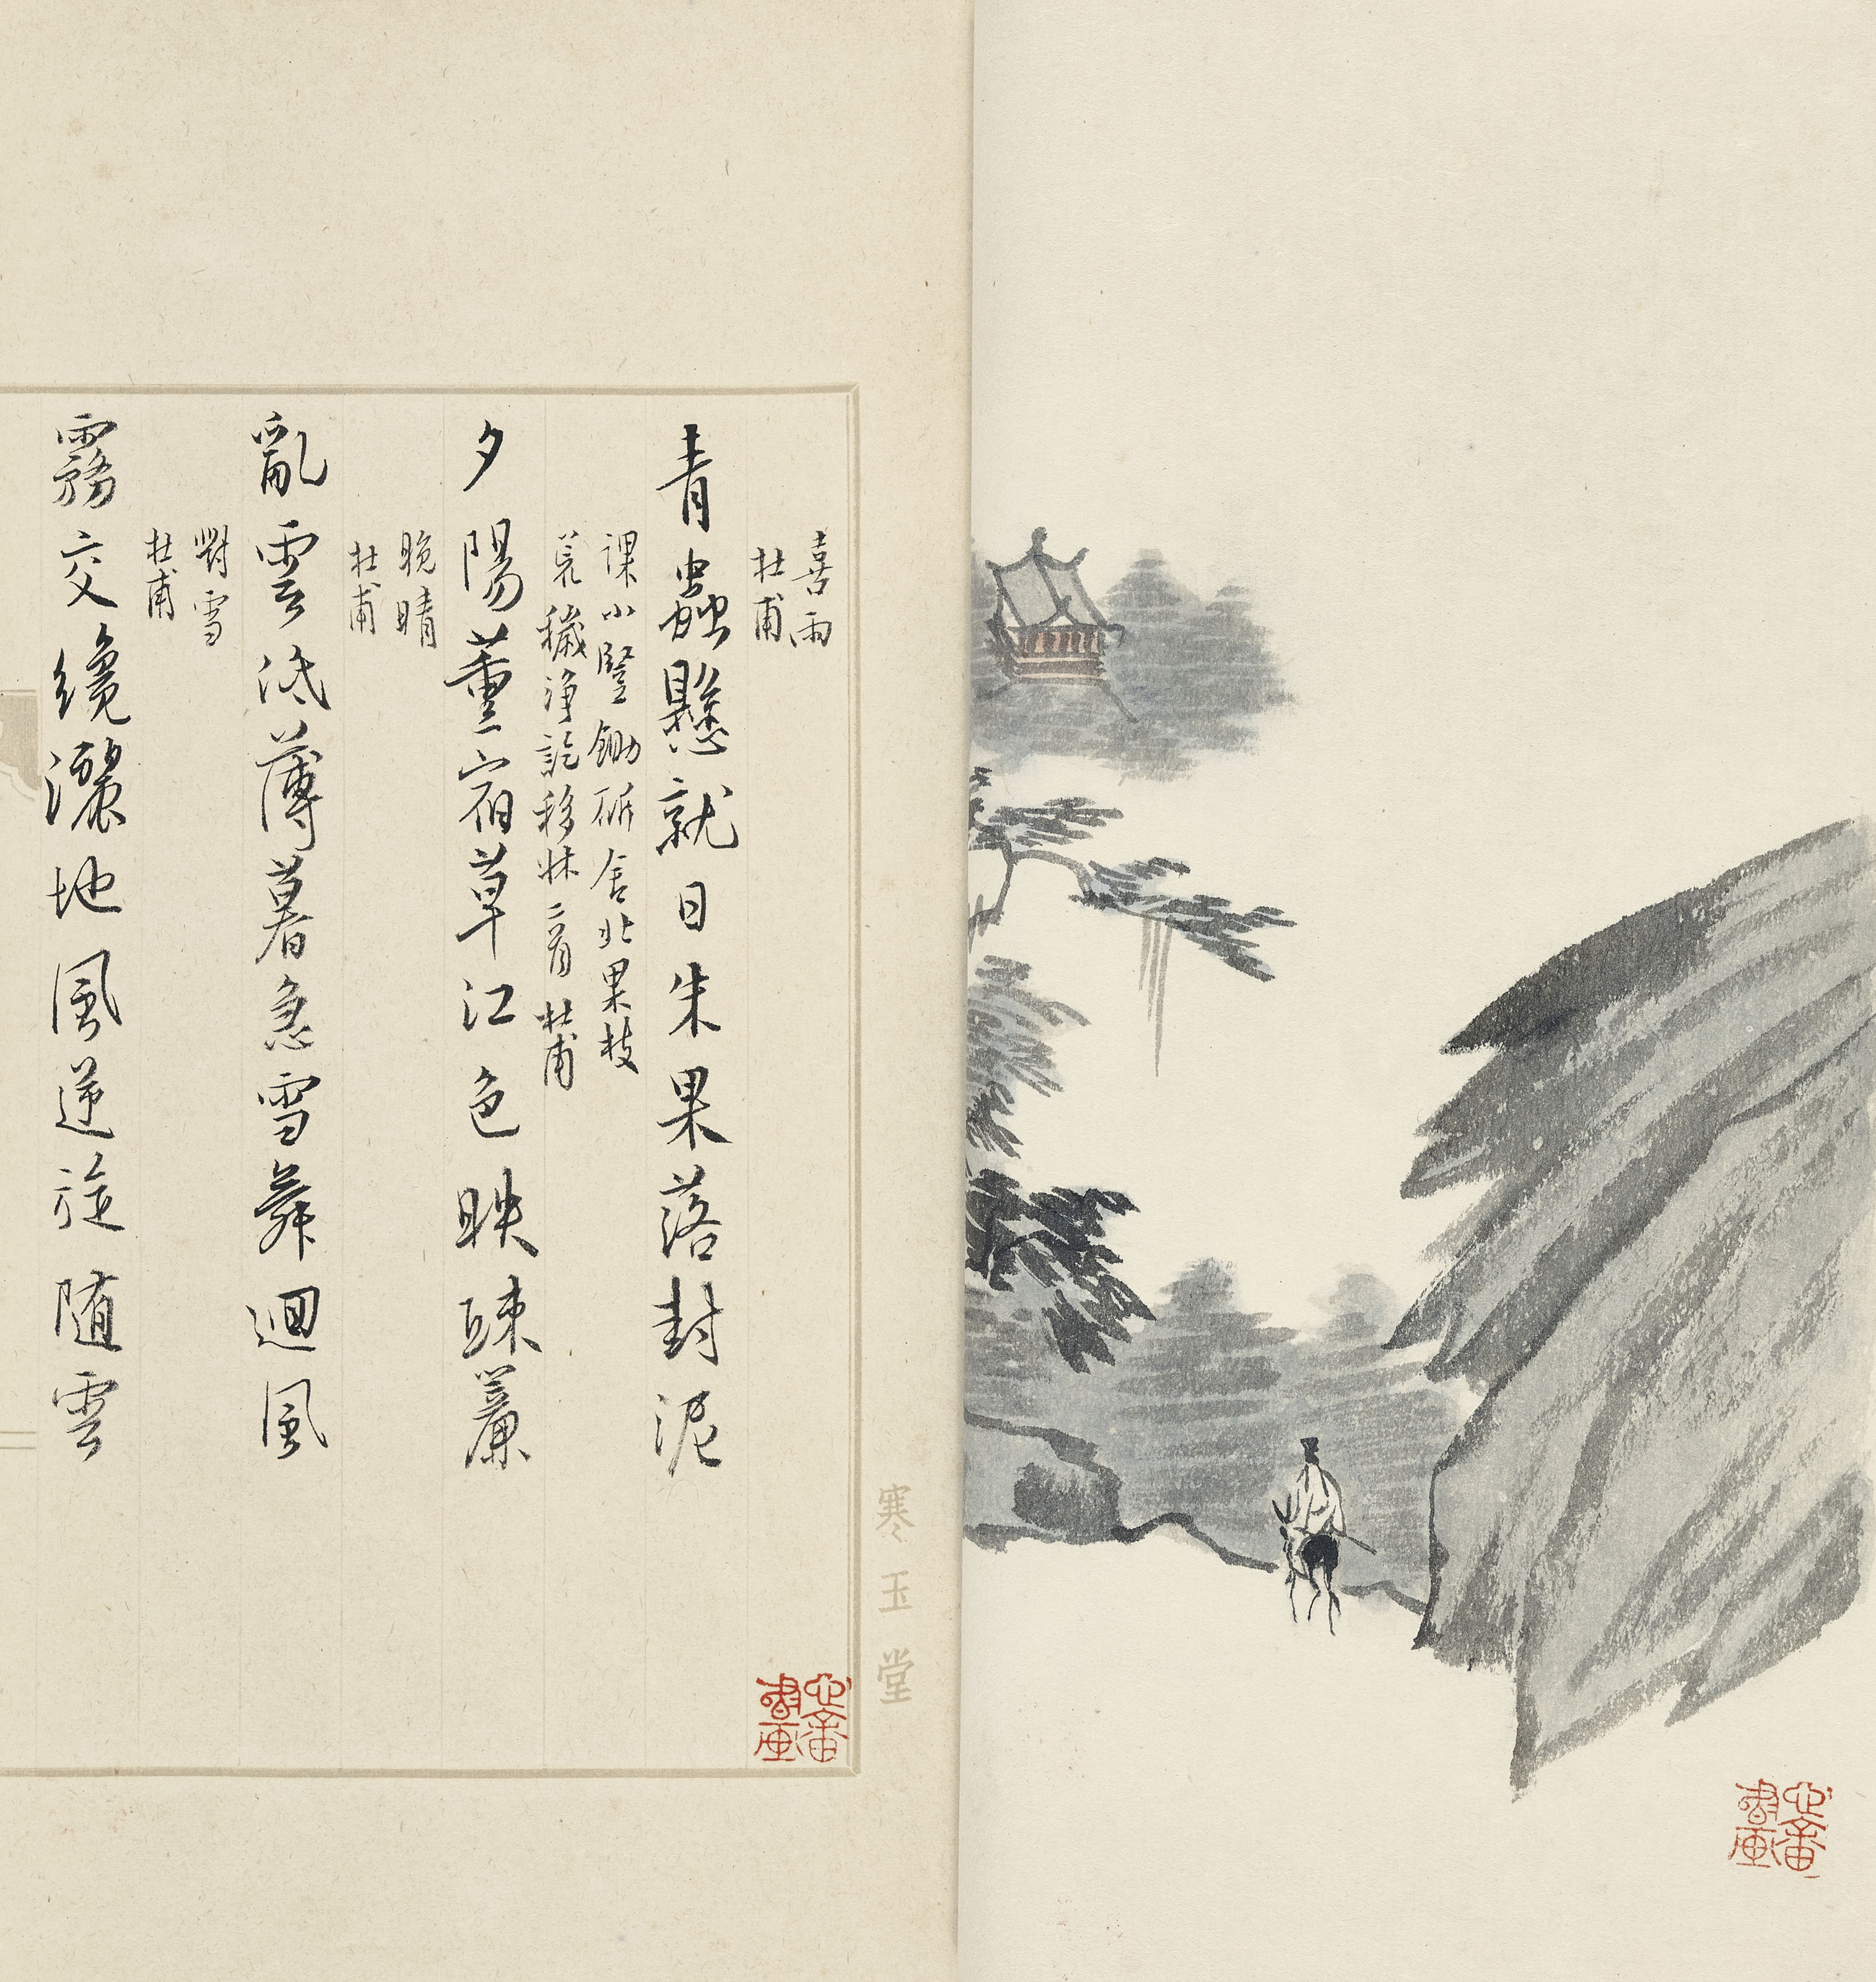 喜雨
杜甫
青蟲懸就日朱果落封泥
課小豎鋤斫舍北果枝
荒穢淨訖移牀二首 杜甫
夕陽薰宿草江色映疎簾
晚晴
杜甫
亂雲低薄暮急雪舞迴風
對雪
杜甫
霧交纔灑地風逆旋隨雲
寒玉堂
心畬書畫
心畬書畫